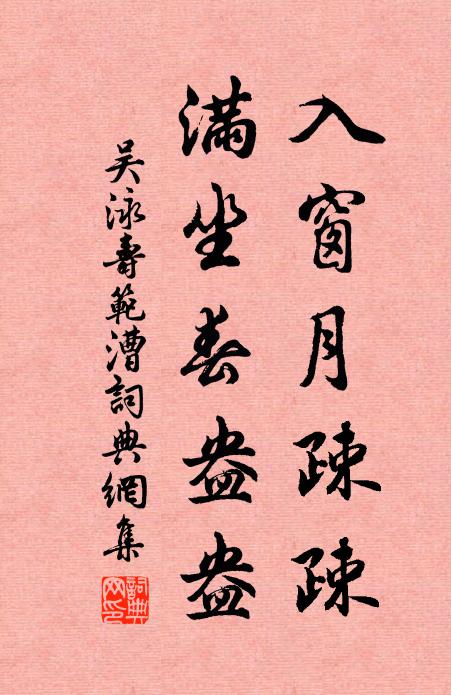 入窗月疎疎
滿坐春盎盎
吴泳壽範漕詞典網集
詞典網印